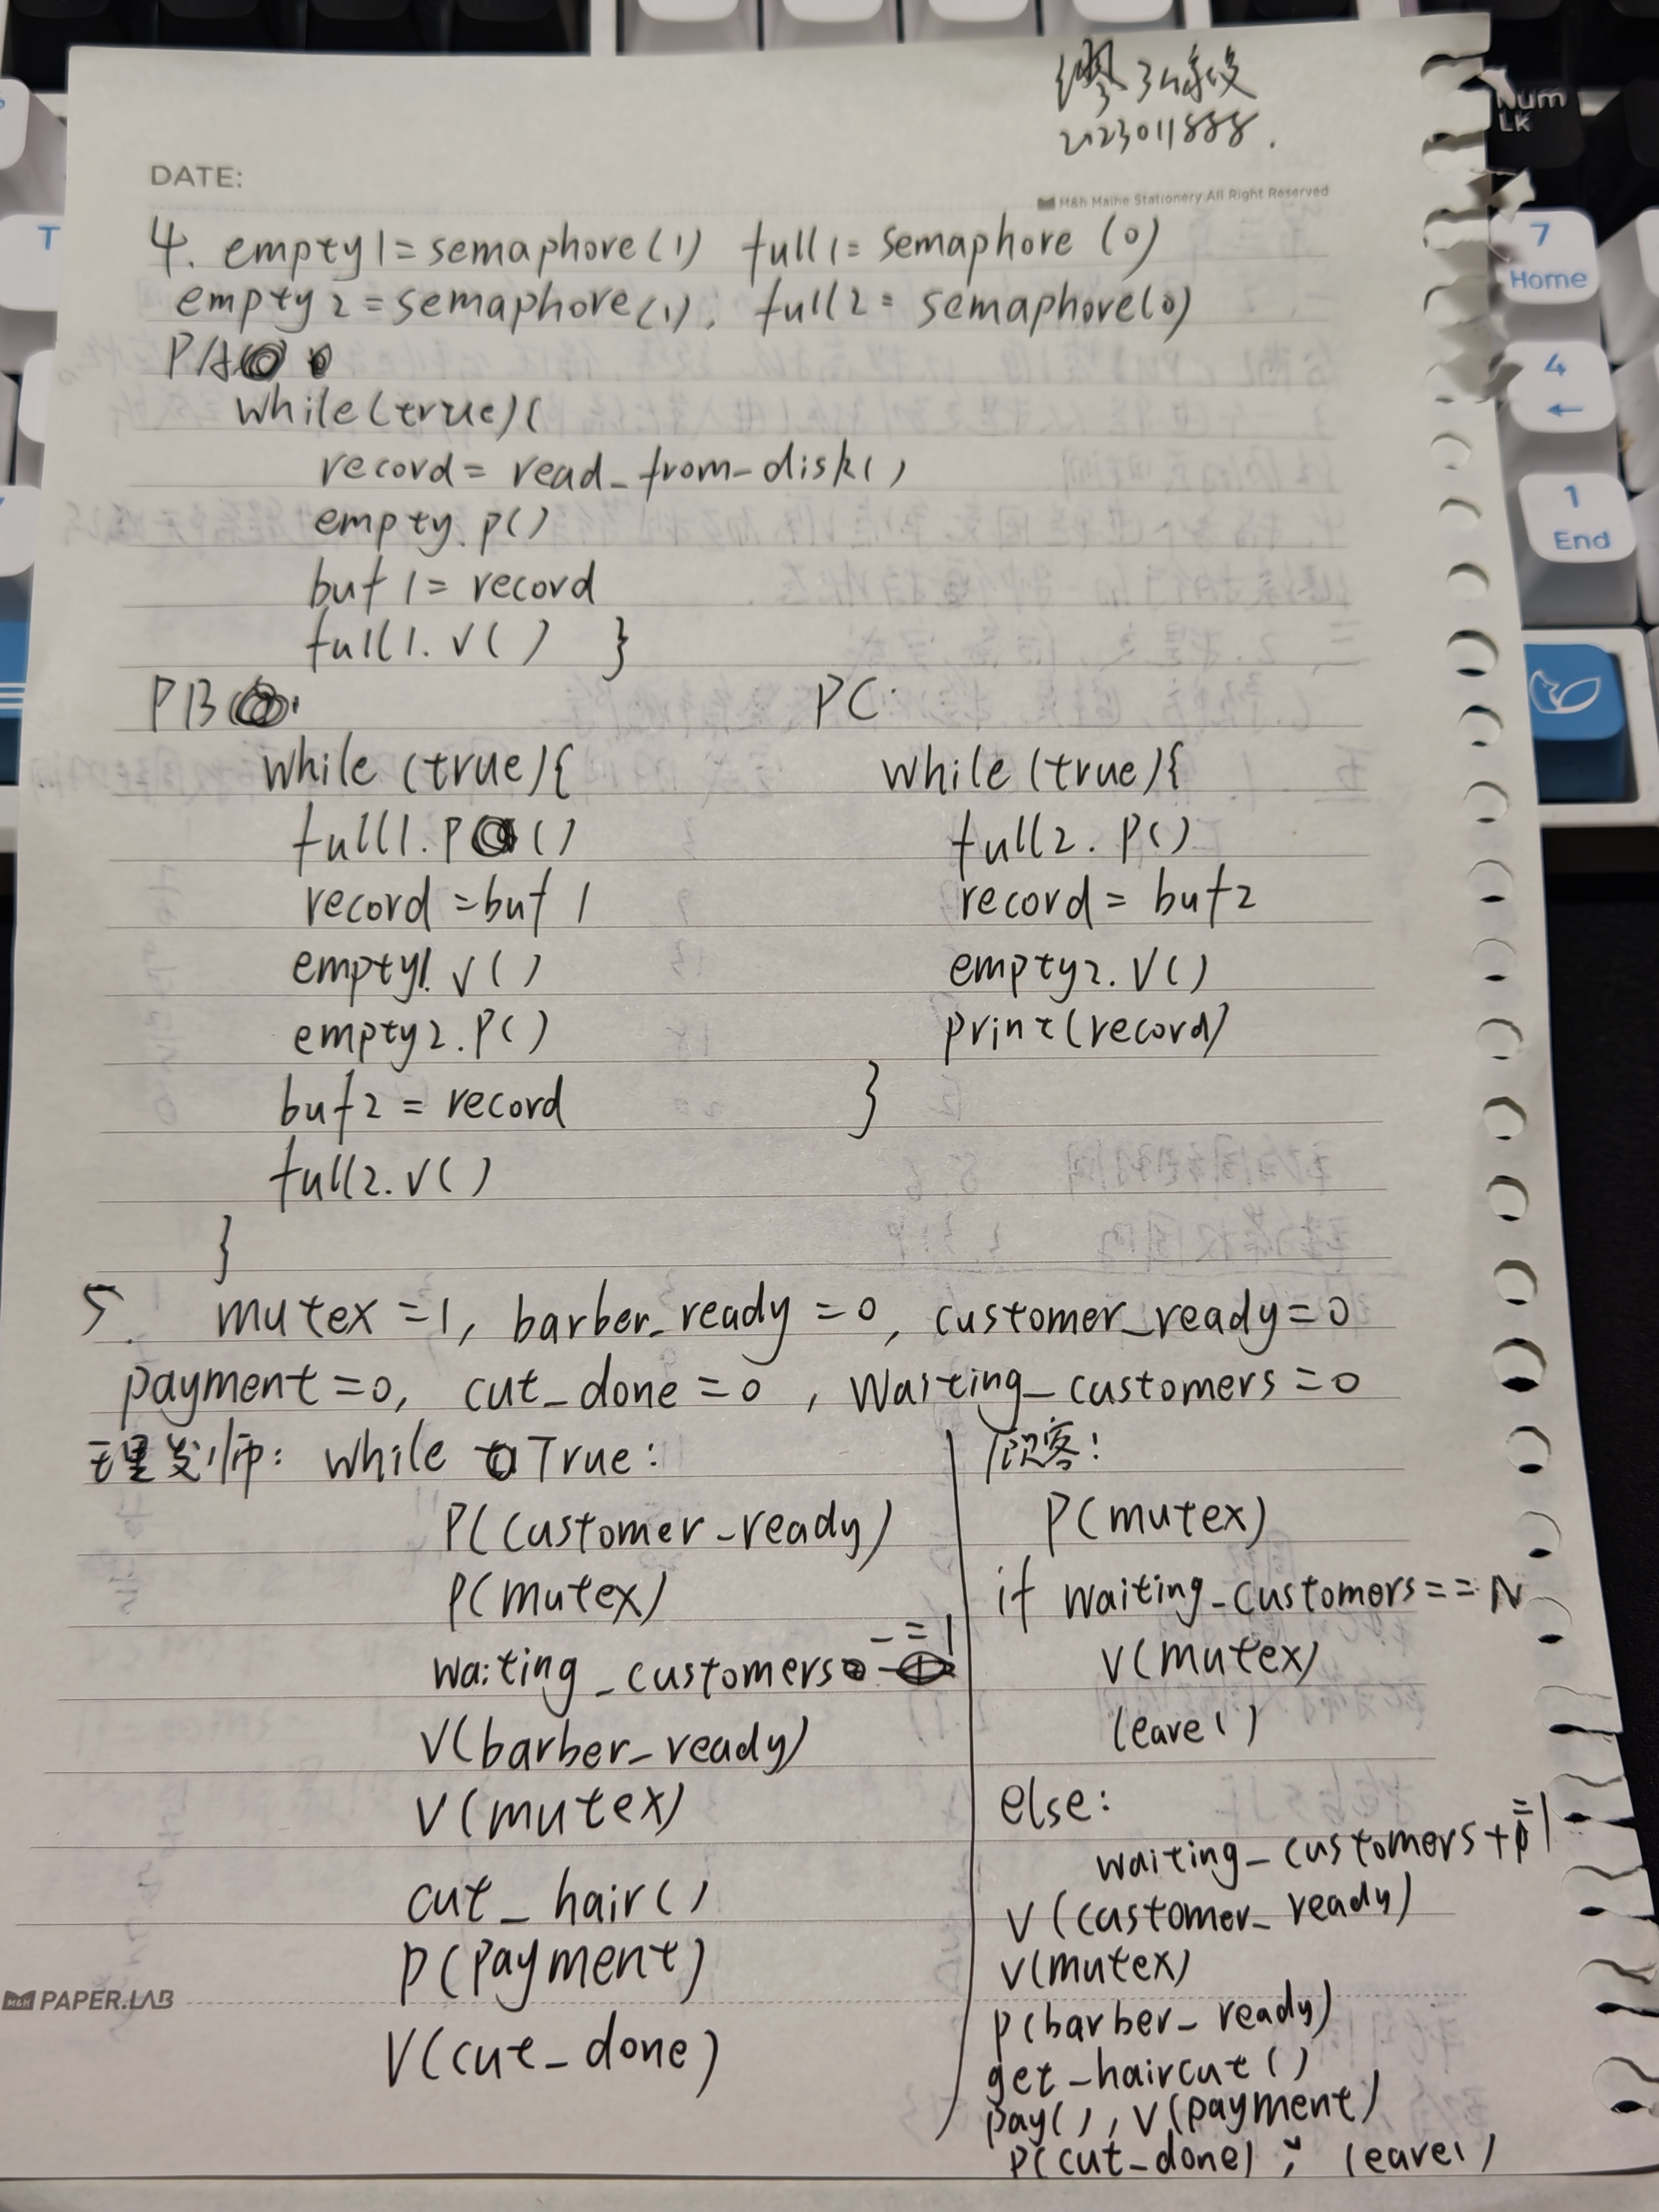 2023011888.
DATE:
M&h Maihe Stationery All Right Reserved
4. empty1=semaphore(1) full1=semaphore(0)
empty2=semaphore(1). full2=semaphore(0)
PA
while(true){
record=read_from_disk()
empty.p()
buf1=record
full1.v() }
PB
while (true){
full1.P()
record=buf1
empty1.v()
empty2.P()
buf2=record
full2.v()
}
PC:
while(true){
full2.P()
record=buf2
empty2.V()
print(record)
}
5. mutex=1, barber_ready=0, customer_ready=0
payment=0, cut_done=0, Waiting_customers=0
理发师: while True:
P(customer_ready)
P(mutex)
waiting_customers-=1
V(barber_ready)
V(mutex)
cut_hair()
P(payment)
V(cut_done)
顾客:
P(mutex)
if waiting_customers==N
V(mutex)
leave()
else:
waiting_customers+=1
V(customer_ready)
V(mutex)
P(barber_ready)
get_haircut()
pay(), V(payment)
P(cut_done); leave()
M&h PAPER.LAB
Num
LK
7
Home
4
←
1
End
T